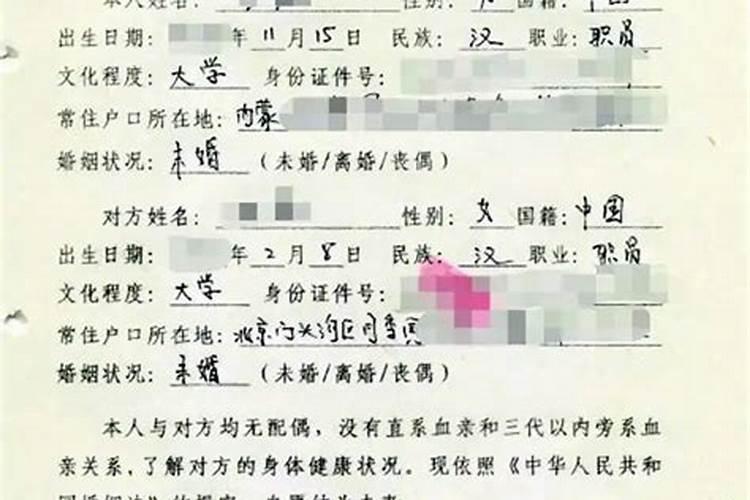 本人姓名： 性别： 国籍：中国
出生日期： 年11月15日 民族：汉 职业：职员
文化程度：大学 身份证件号：
常住户口所在地：内蒙
婚姻状况：未婚（未婚/离婚/丧偶）
对方姓名： 性别：女 国籍：中国
出生日期： 年2月8日 民族：汉 职业：职员
文化程度：大学 身份证件号：
常住户口所在地：北京门头沟区
婚姻状况：未婚（未婚/离婚/丧偶）
本人与对方均无配偶，没有直系血亲和三代以内旁系血
亲关系，了解对方的身体健康状况。现依照《中华人民共和
国婚姻法》的规定，自愿结为夫妻